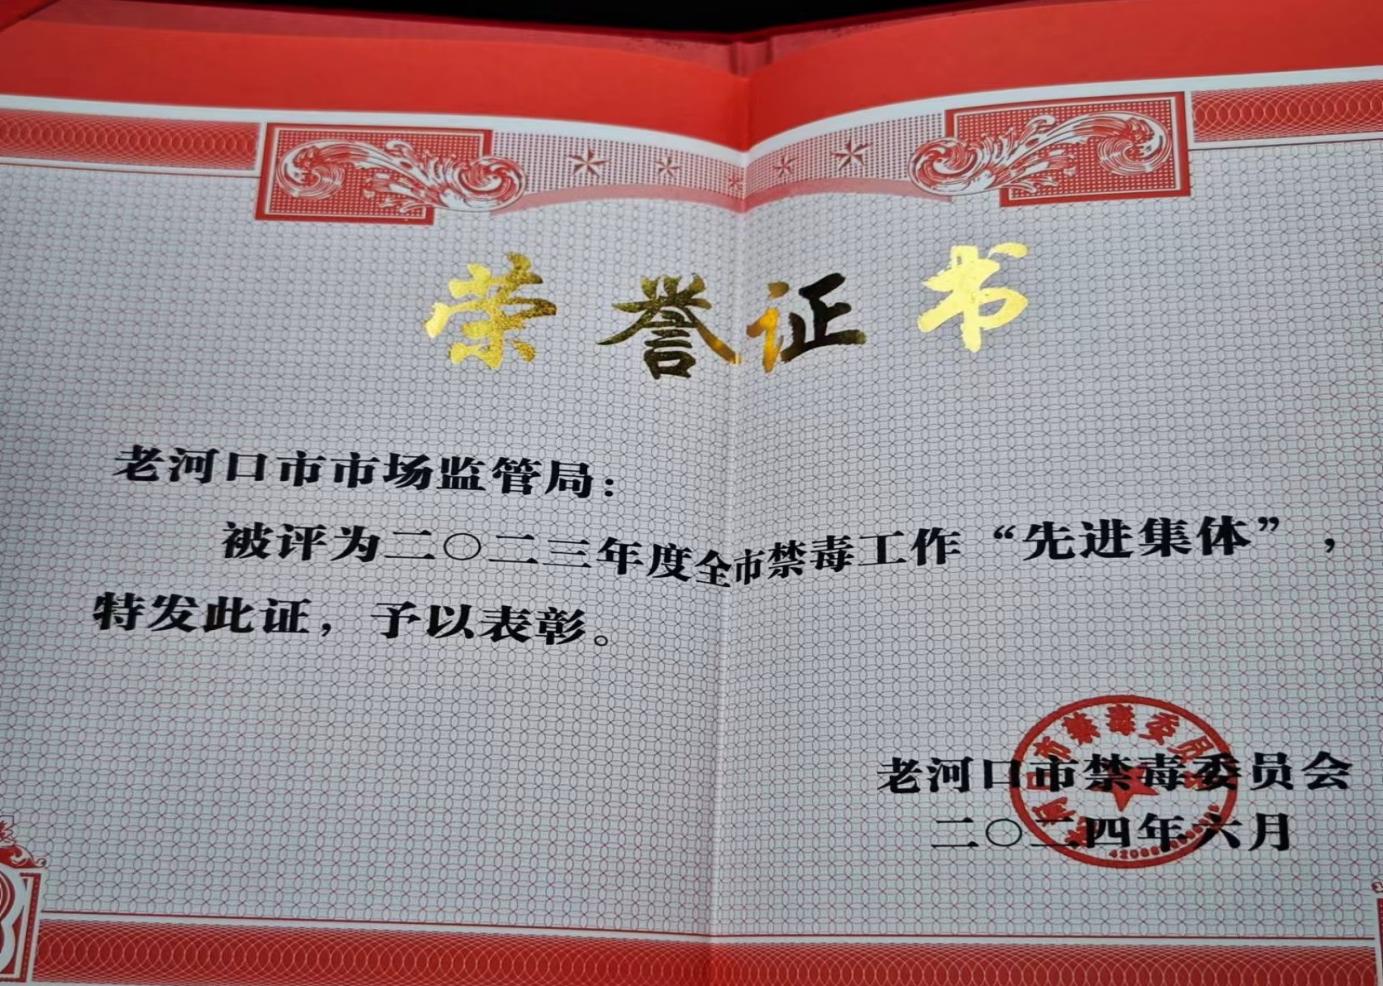 荣誉证书
老河口市市场监管局：
被评为二〇二三年度全市禁毒工作“先进集体”，
特发此证，予以表彰。
老河口市禁毒委员会
二〇二四年六月